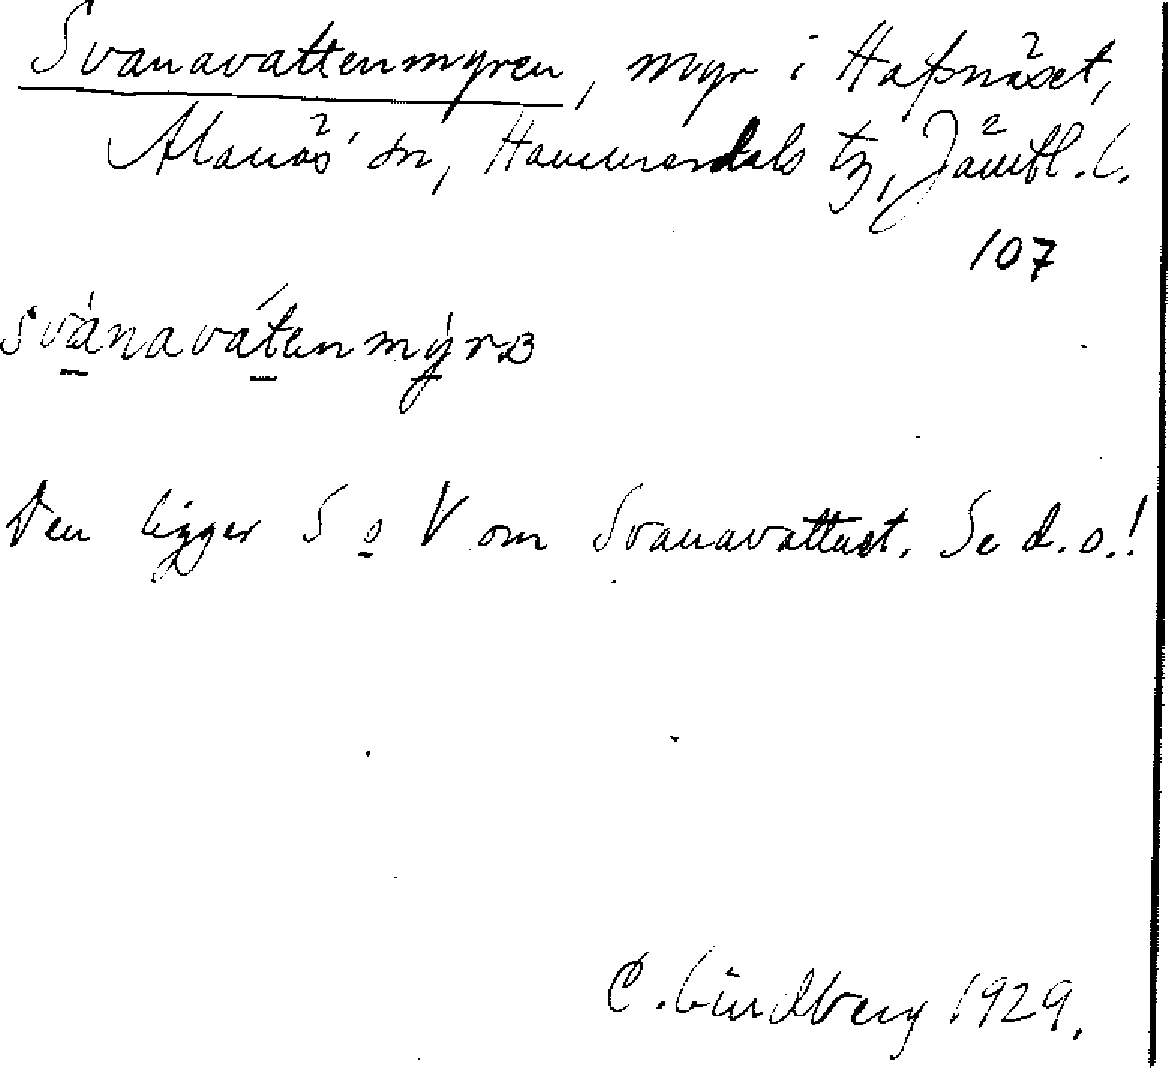 Svanavattenmyren, myr i Hafsnäset,
Alanäs' sn, Hammerdals tg, Jämtl. l.
107
svànavátenmỳrʙ
Den ligger S o V om Svanavattnet. Se d.o.!
C. Lindberg 1929.